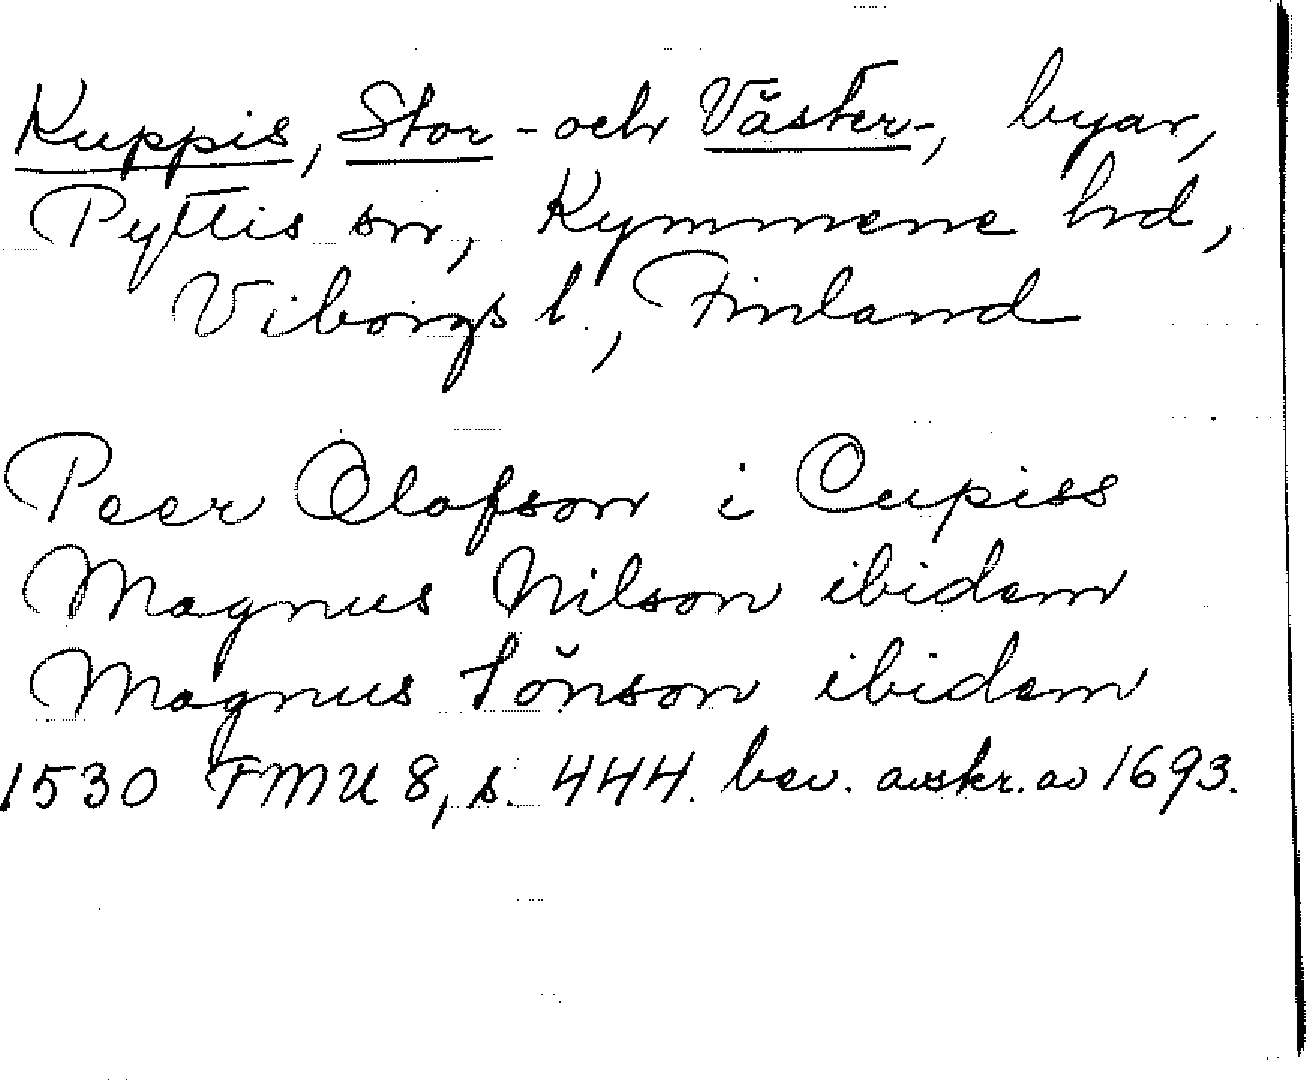 Kuppis, Stor- och Väster-, byar,
Pyttis sn, Kymmene hd,
Viborgs l., Finland
Peer Olofson i Cupiss
Magnus Nilson ibidem
Magnus Iönson ibidem
1530 FMU 8, s. 444. bev. avskr. av 1693.